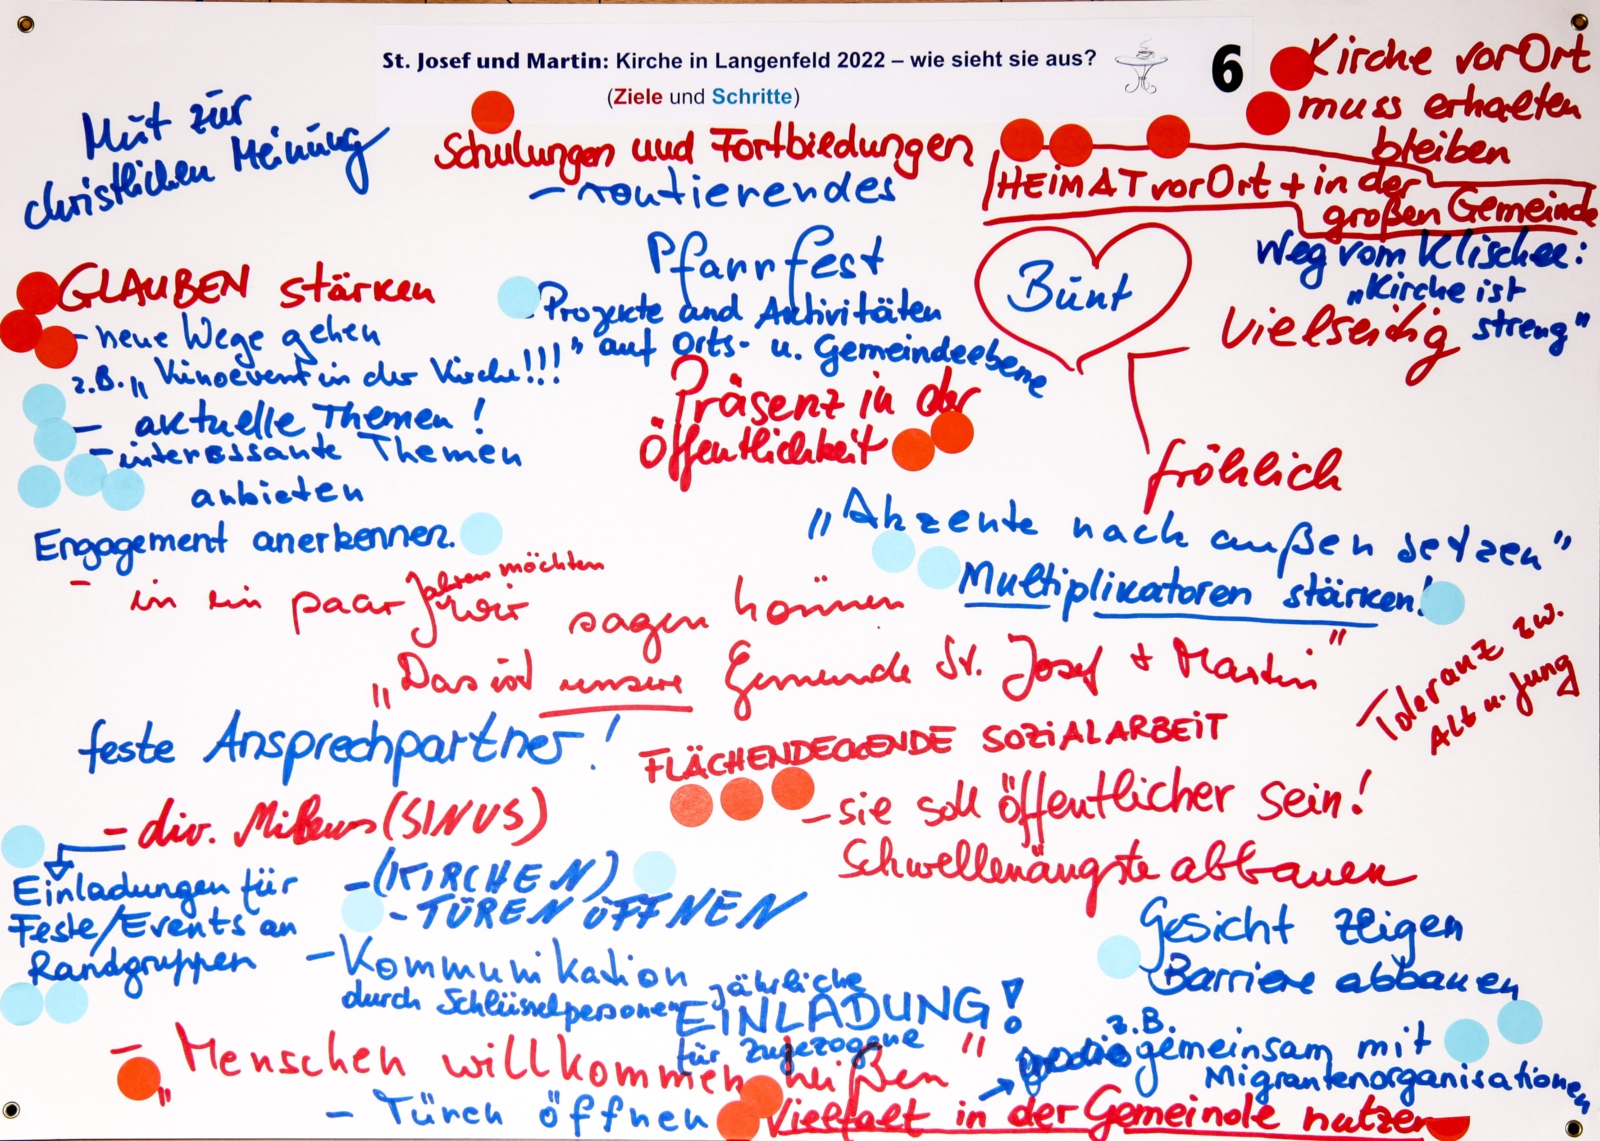 St. Josef und Martin: Kirche in Langenfeld 2022 – wie sieht sie aus?
(Ziele und Schritte)
6
Kirche vor Ort
muss erhalten
bleiben
Mut zur
christlichen Meinung
Schulungen und Fortbildungen
- routierendes
Pfarrfest
HEIMAT vor Ort + in der
großen Gemeinde
Bunt
Weg vom Klischee:
„Kirche ist
streng"
vielseitig
fröhlich
GLAUBEN stärken
- neue Wege gehen
z.B. „Kinoevent in der Kirche!!!"
- aktuelle Themen!
- interessante Themen
anbieten
Projekte und Aktivitäten
auf Orts- u. Gemeindeebene
Präsenz in der
Öffentlichkeit
Engagement anerkennen.
„Akzente nach außen setzen"
Multiplikatoren stärken!
- in ein paar Jahren möchten
wir sagen können
„Das ist unsere Gemeinde St. Josef + Martin"
Toleranz zw.
Alt u. Jung
feste Ansprechpartner!
FLÄCHENDECKENDE SOZIALARBEIT
- sie soll öffentlicher sein!
Schwellenängste abbauen
- div. Milieus (SINUS)
Einladungen für
Feste/Events an
Randgruppen
- (KIRCHEN)
- TÜREN ÖFFNEN
- Kommunikation
durch Schlüsselpersonen
jährliche
EINLADUNG!
für Zugezogene
Gesicht zeigen
Barriere abbauen
z.B.
gemeinsam mit
Migrantenorganisationen
- „Menschen willkommen heißen"
- Türen öffnen
Vielfalt in der Gemeinde nutzen